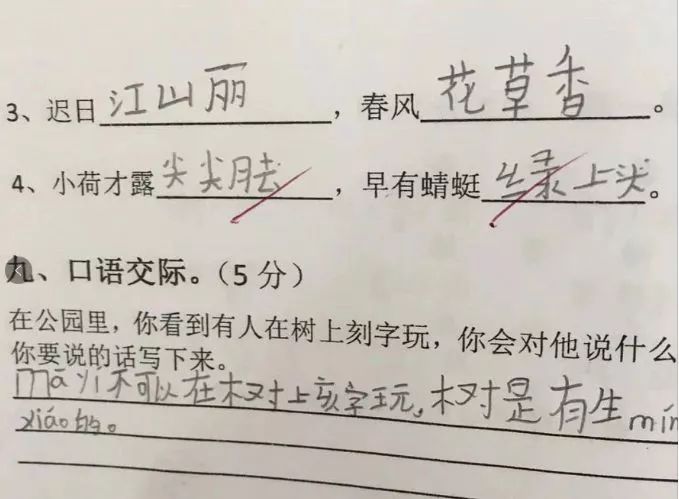 3、迟日江山丽,春风花草香。
4、小荷才露尖尖脚,早有蜻蜓绿上尖。
九、口语交际。(5分)
在公园里,你看到有人在树上刻字玩,你会对他说什么
你要说的话写下来。
mā yi不可以在树上刻字玩,树是有生min
xiáo的。